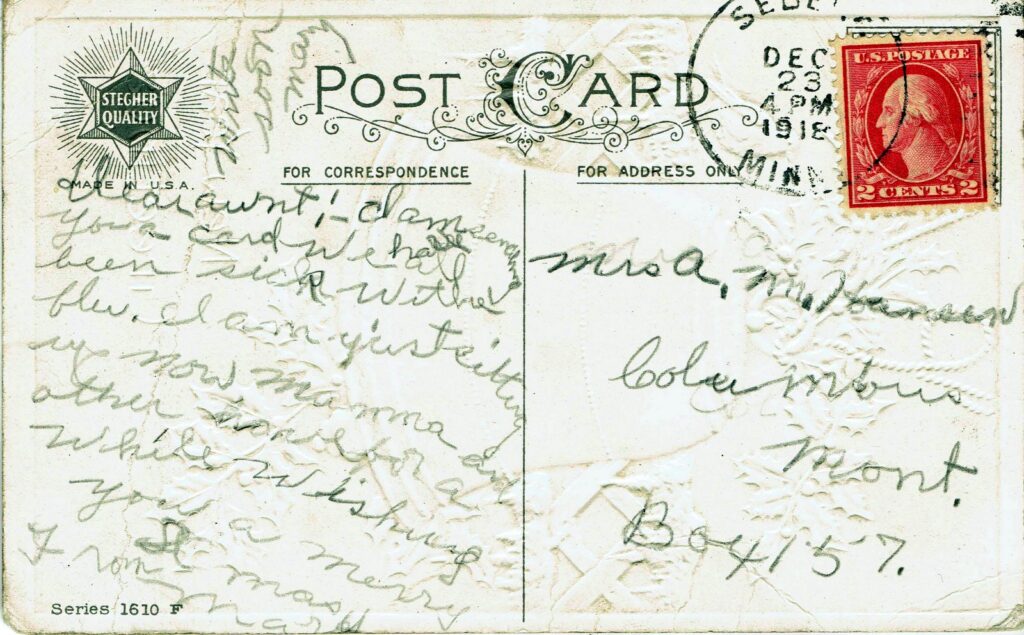 STEGHER
QUALITY
MADE IN U.S.A.
POST CARD
FOR CORRESPONDENCE
FOR ADDRESS ONLY
DEC
23
4 PM
1918
MINN
U.S. POSTAGE
2 CENTS 2
Dear aunt!- I am sending
you a card we all have
been sick with
flu. I am just sitting
up now mamma and
other
while wishing
you a merry
mas
From
Mary
Mrs A. M. Hansen
Columbus
Mont.
Box 157.
Series 1610 F